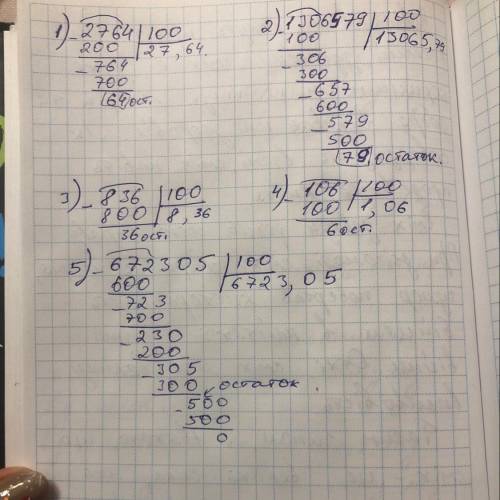 1) 2764 | 100
200 | 27,64.
- 764
700
64 ост.
2) 1306579 | 100
100 | 13065,79
- 306
300
- 657
600
- 579
500
79 остаток.
3) - 836 | 100
800 | 8,36
36 ост.
4) - 106 | 100
100 | 1,06
6 ост.
5) - 672305 | 100
600 | 6723,05
- 723
700
- 230
200
- 305
300 остаток.
- 500
500
0